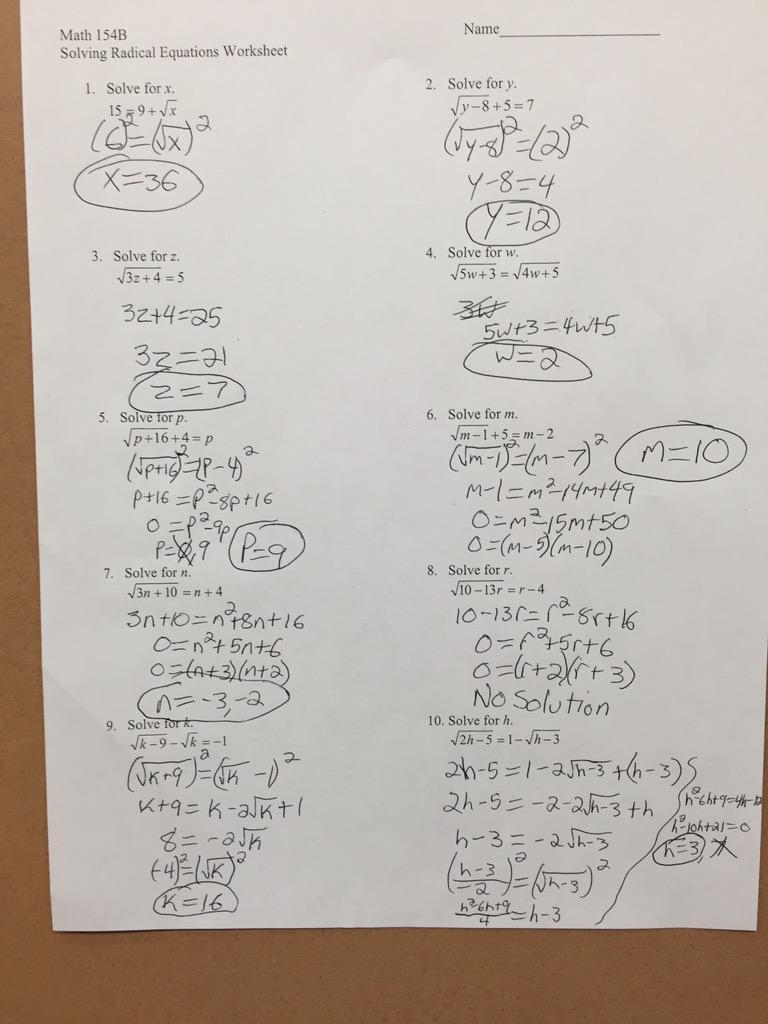 Math 154B
Name
Solving Radical Equations Worksheet
1. Solve for x.
15 = 9 + √x
(6)² = (√x)²
x = 36
2. Solve for y.
√(y−8) + 5 = 7
(√(y-8))² = (2)²
y-8 = 4
y = 12
3. Solve for z.
√(3z+4) = 5
3z+4 = 25
3z = 21
z = 7
4. Solve for w.
√(5w+3) = √(4w+5)
3w
5w+3 = 4w+5
w = 2
5. Solve for p.
√(p+16) + 4 = p
(√(p+16))² = (p-4)²
p+16 = p²-8p+16
0 = p²-9p
p = 0, 9
p = 9
6. Solve for m.
√(m−1) + 5 = m − 2
(√(m-1))² = (m-7)²
m = 10
m-1 = m²-14m+49
0 = m²-15m+50
0 = (m-5)(m-10)
7. Solve for n.
√(3n+10) = n + 4
3n+10 = n²+8n+16
0 = n²+5n+6
0 = (n+3)(n+2)
n = -3, -2
8. Solve for r.
√(10−13r) = r − 4
10-13r = r²-8r+16
0 = r²+5r+6
0 = (r+2)(r+3)
No Solution
9. Solve for k.
√(k−9) − √k = −1
(√(k+9))² = (√k -1)²
k+9 = k-2√k+1
8 = -2√k
(-4)² = (√k)²
k = 16
10. Solve for h.
√(2h−5) = 1 − √(h−3)
2h-5 = 1-2√(h-3)+(h-3)
2h-5 = -2-2√(h-3)+h
h-3 = -2√(h-3)
((h-3)/-2)² = (√(h-3))²
(h²-6h+9)/4 = h-3
h²-6h+9=4h-12
h²-10h+21=0
h=3,